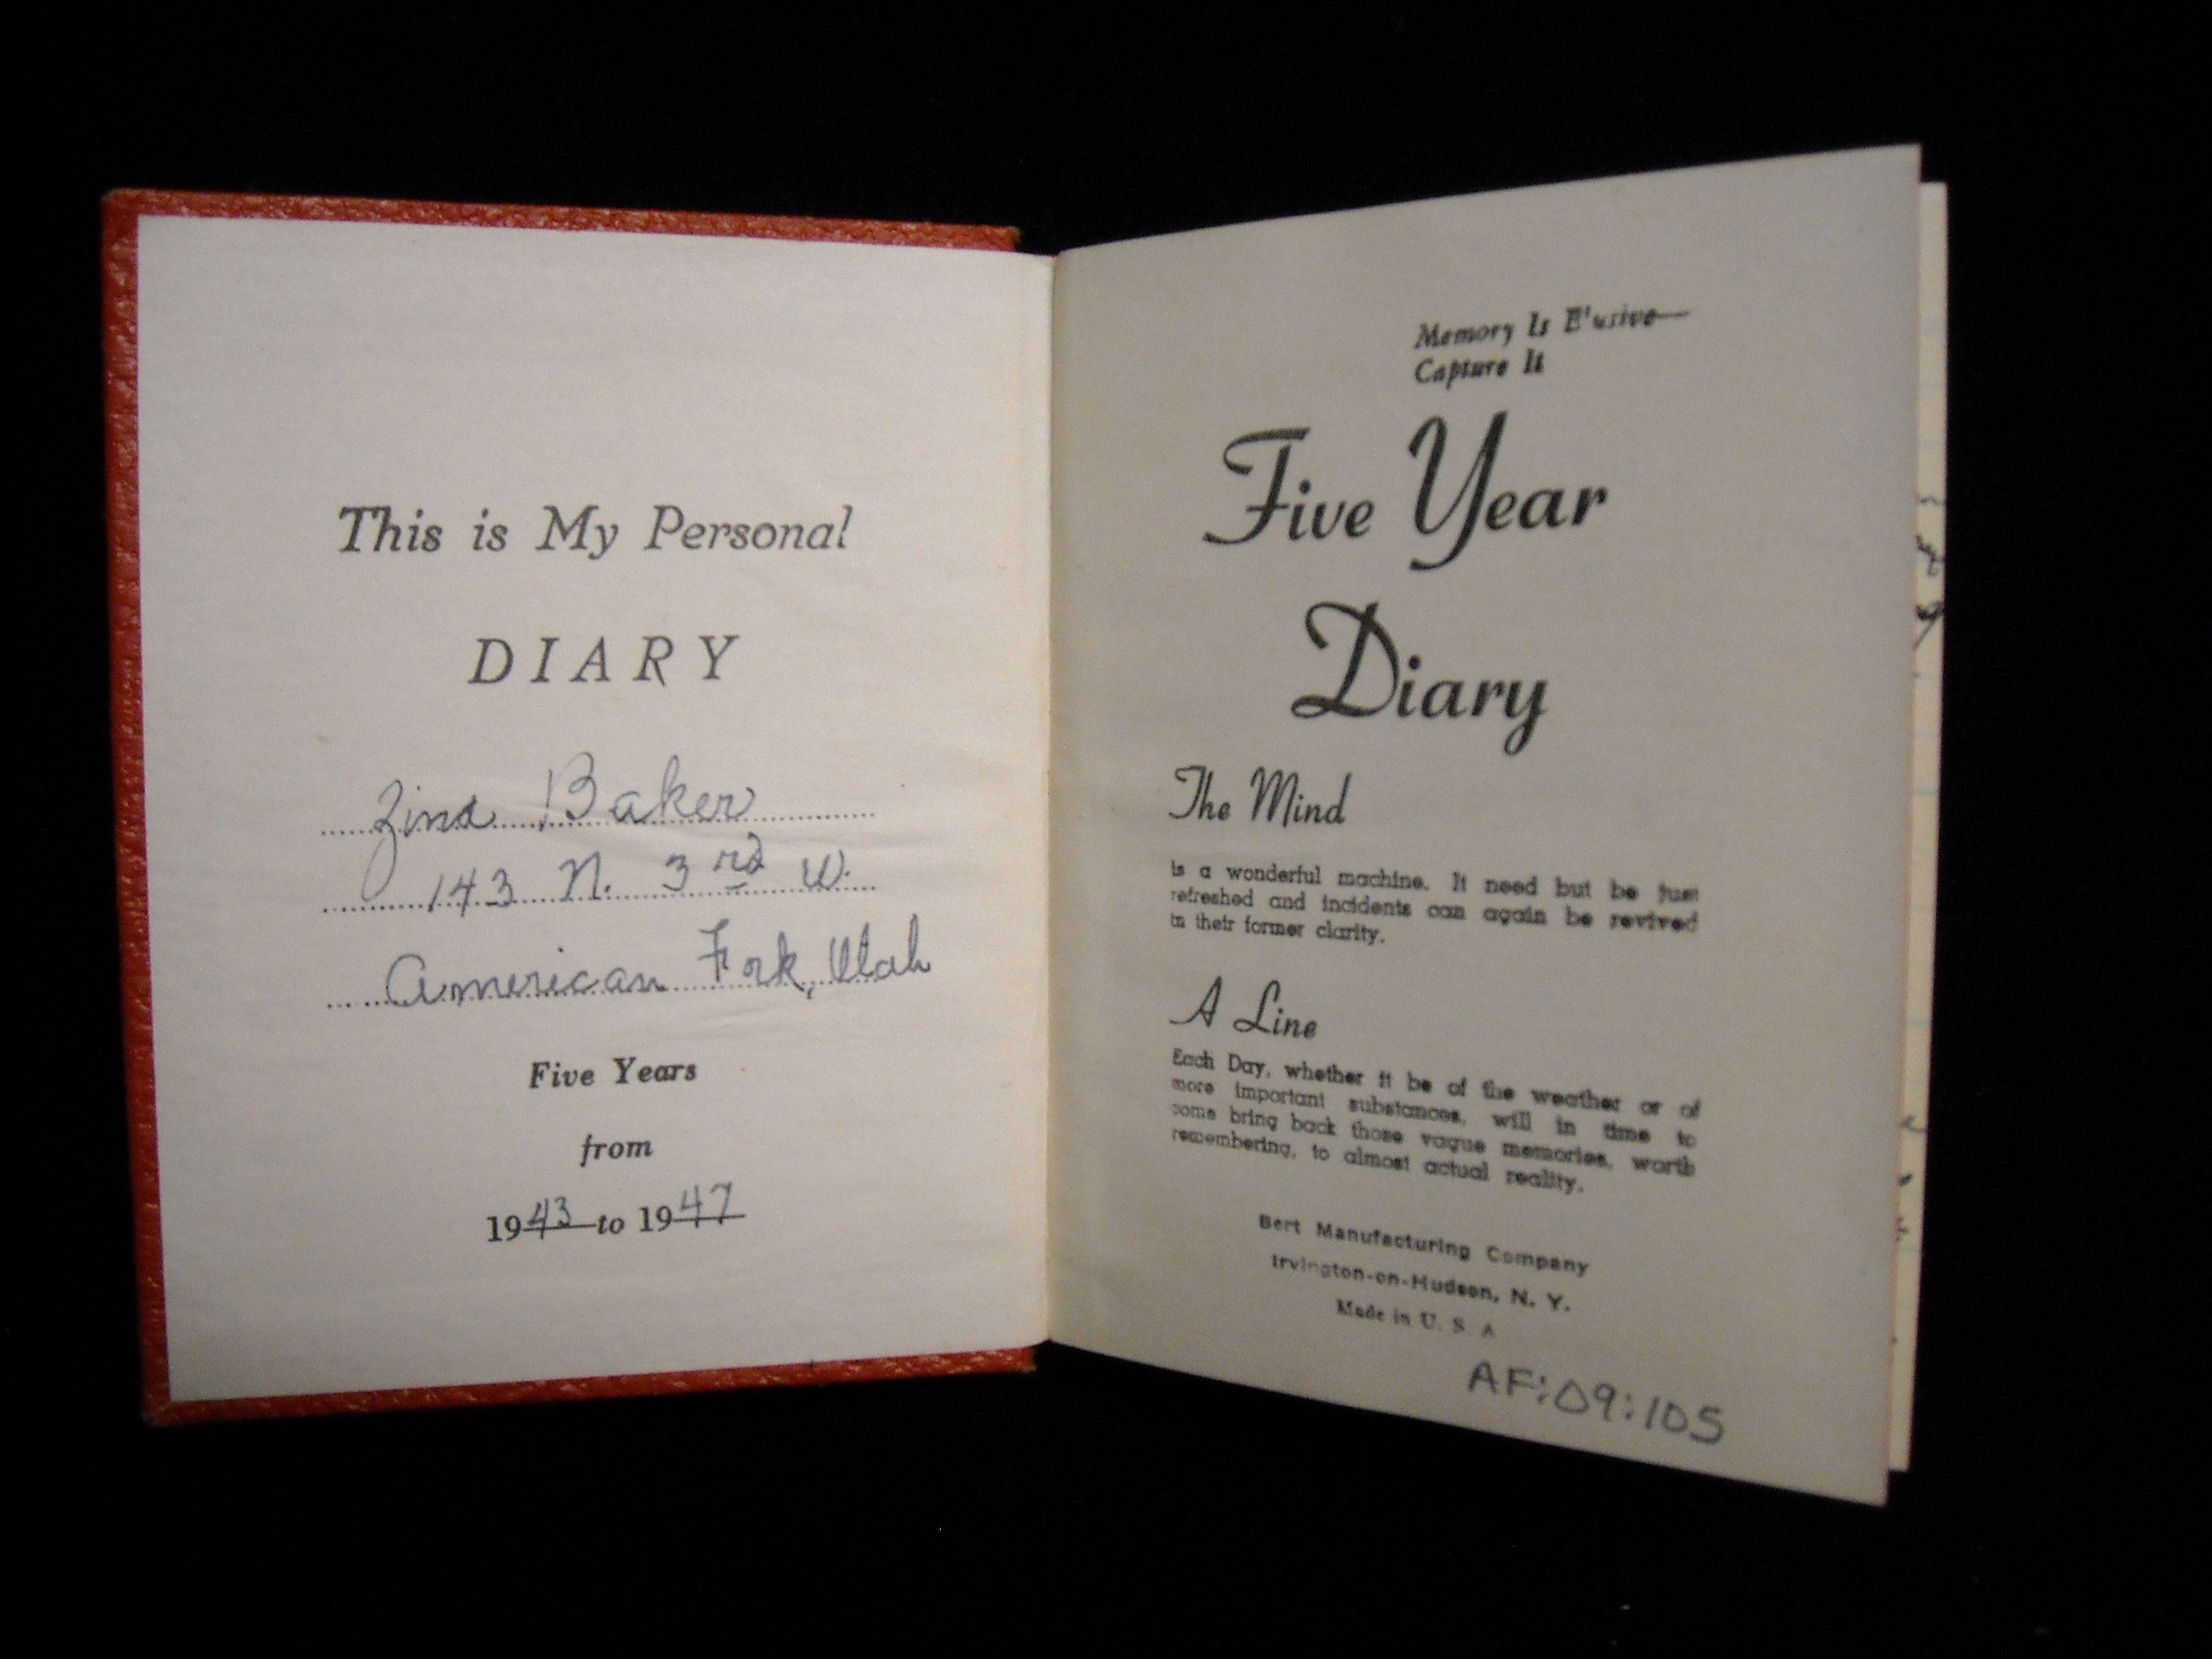 This is My Personal
DIARY
Zina Baker
143 N. 3rd W.
American Fork, Utah
Five Years
from
1943 to 1947
Memory Is Elusive—
Capture It
Five Year
Diary
The Mind
is a wonderful machine. It need but be just
refreshed and incidents can again be revived
in their former clarity.
A Line
Each Day, whether it be of the weather or of
more important substances, will in time to
come bring back those vague memories, worth
remembering, to almost actual reality.
Bert Manufacturing Company
Irvington-on-Hudson, N. Y.
Made in U. S A
AF:09:105